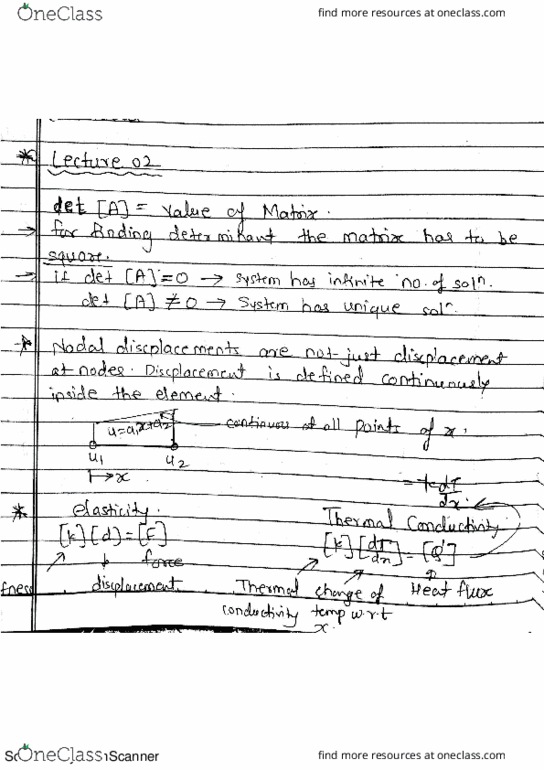 OneClass find more resources at oneclass.com
* Lecture 02
det [A] = value of Matrix.
→ for finding determinant the matrix has to be
square.
→ if det [A] = 0 → system has infinite no. of solⁿ.
det [A] ≠ 0 → System has unique solⁿ.
* Nodal discplacements are not just discplacement
at nodes. Discplacement is defined continuously
inside the element.
continuous at all points of x.
u₁ u₂
→ x
= -k dT/dx
* elasticity. Thermal Conductivity.
[k] [d] = [F] [k] [dT/dx] = [Q]
force
fness displacement Thermal change of Heat flux
conductivity temp w.r.t
x.
OneClass Scanner find more resources at oneclass.com